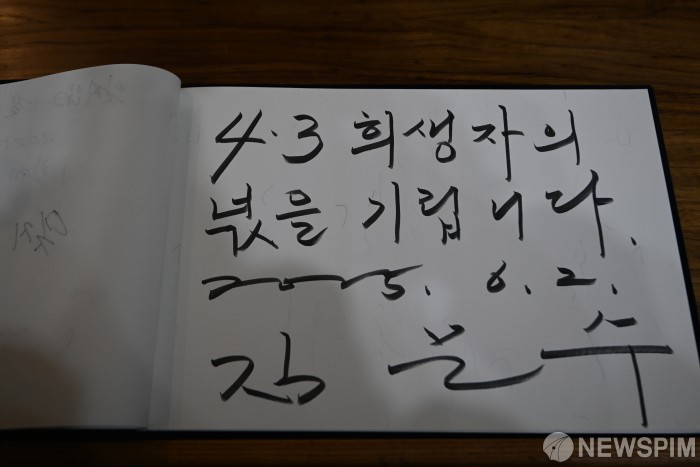 4·3 희생자의
넋을 기립니다.
2025. 6. 2.
김 문 수
NEWSPIM